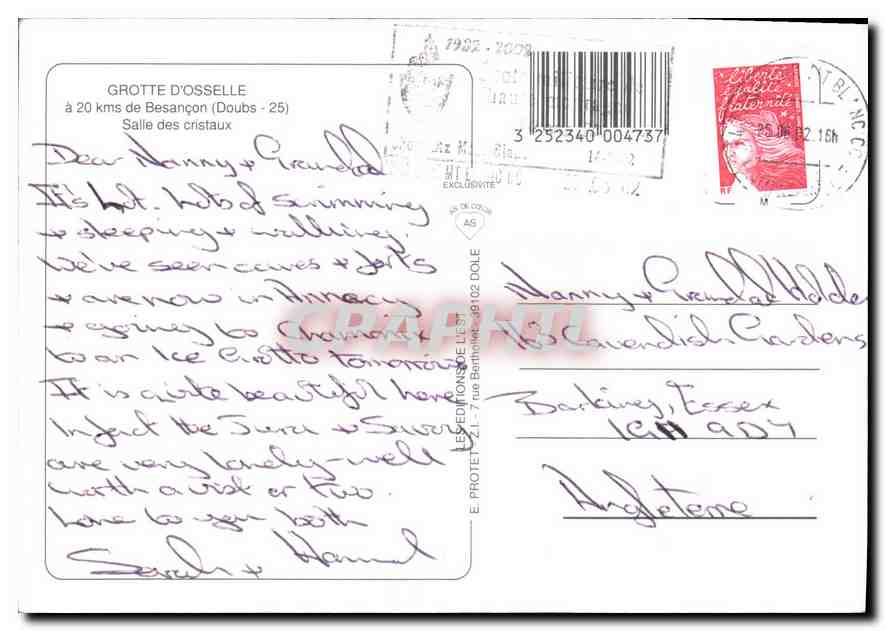 GROTTE D'OSSELLE
à 20 kms de Besançon (Doubs - 25)
Salle des cristaux
Dear Nanny & Grandad
It's hot. Lots of swimming
& sleeping & walking.
We've seen caves & forts
& are now in Annecy
& going to Chamonix
to an Ice Grotto tomorrow
It is quite beautiful here
In fact the Jura &
are very lovely - well
worth a visit or two.
Love to you both
Sarah &
1982 - 2002
3 252340 004737
EXCLUSIVITÉ
AS DE COEUR
AS
E. PROTET - Z.I. - 7 rue Berthollet - 39102 DOLE
LES EDITIONS DE L'EST
CPAPHIL
liberté
égalité
fraternité
RF
25.06.02.16h
M
Nanny & Grandad
Cavendish Gardens
Barking, Essex
IG11 9DY
Angleterre